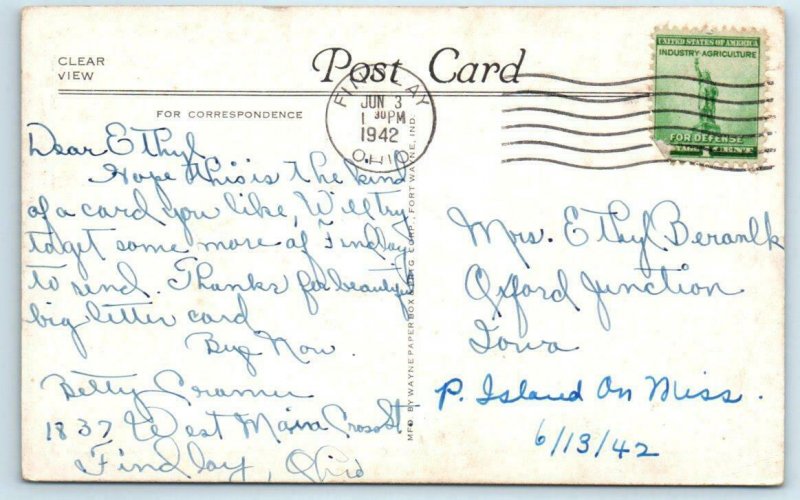 CLEAR
VIEW
Post Card
FOR CORRESPONDENCE
FINDLAY
JUN 3
1 30 PM
1942
OHIO
UNITED STATES OF AMERICA
INDUSTRY AGRICULTURE
FOR DEFENSE
MFD. BY WAYNE PAPER BOX & PRTG. CORP., FORT WAYNE, IND.
Dear Ethyl
Hope this is the kind
of a card you like, Will try
to get some more of Findlay
to send. Thanks for beautiful
big letter card
Bye Now.
Betty Cramer
1837 West Main Cross St.
Findlay, Ohio
Mrs. Ethyl
Oxford Junction
Iowa
P. Island On Miss.
6/13/42